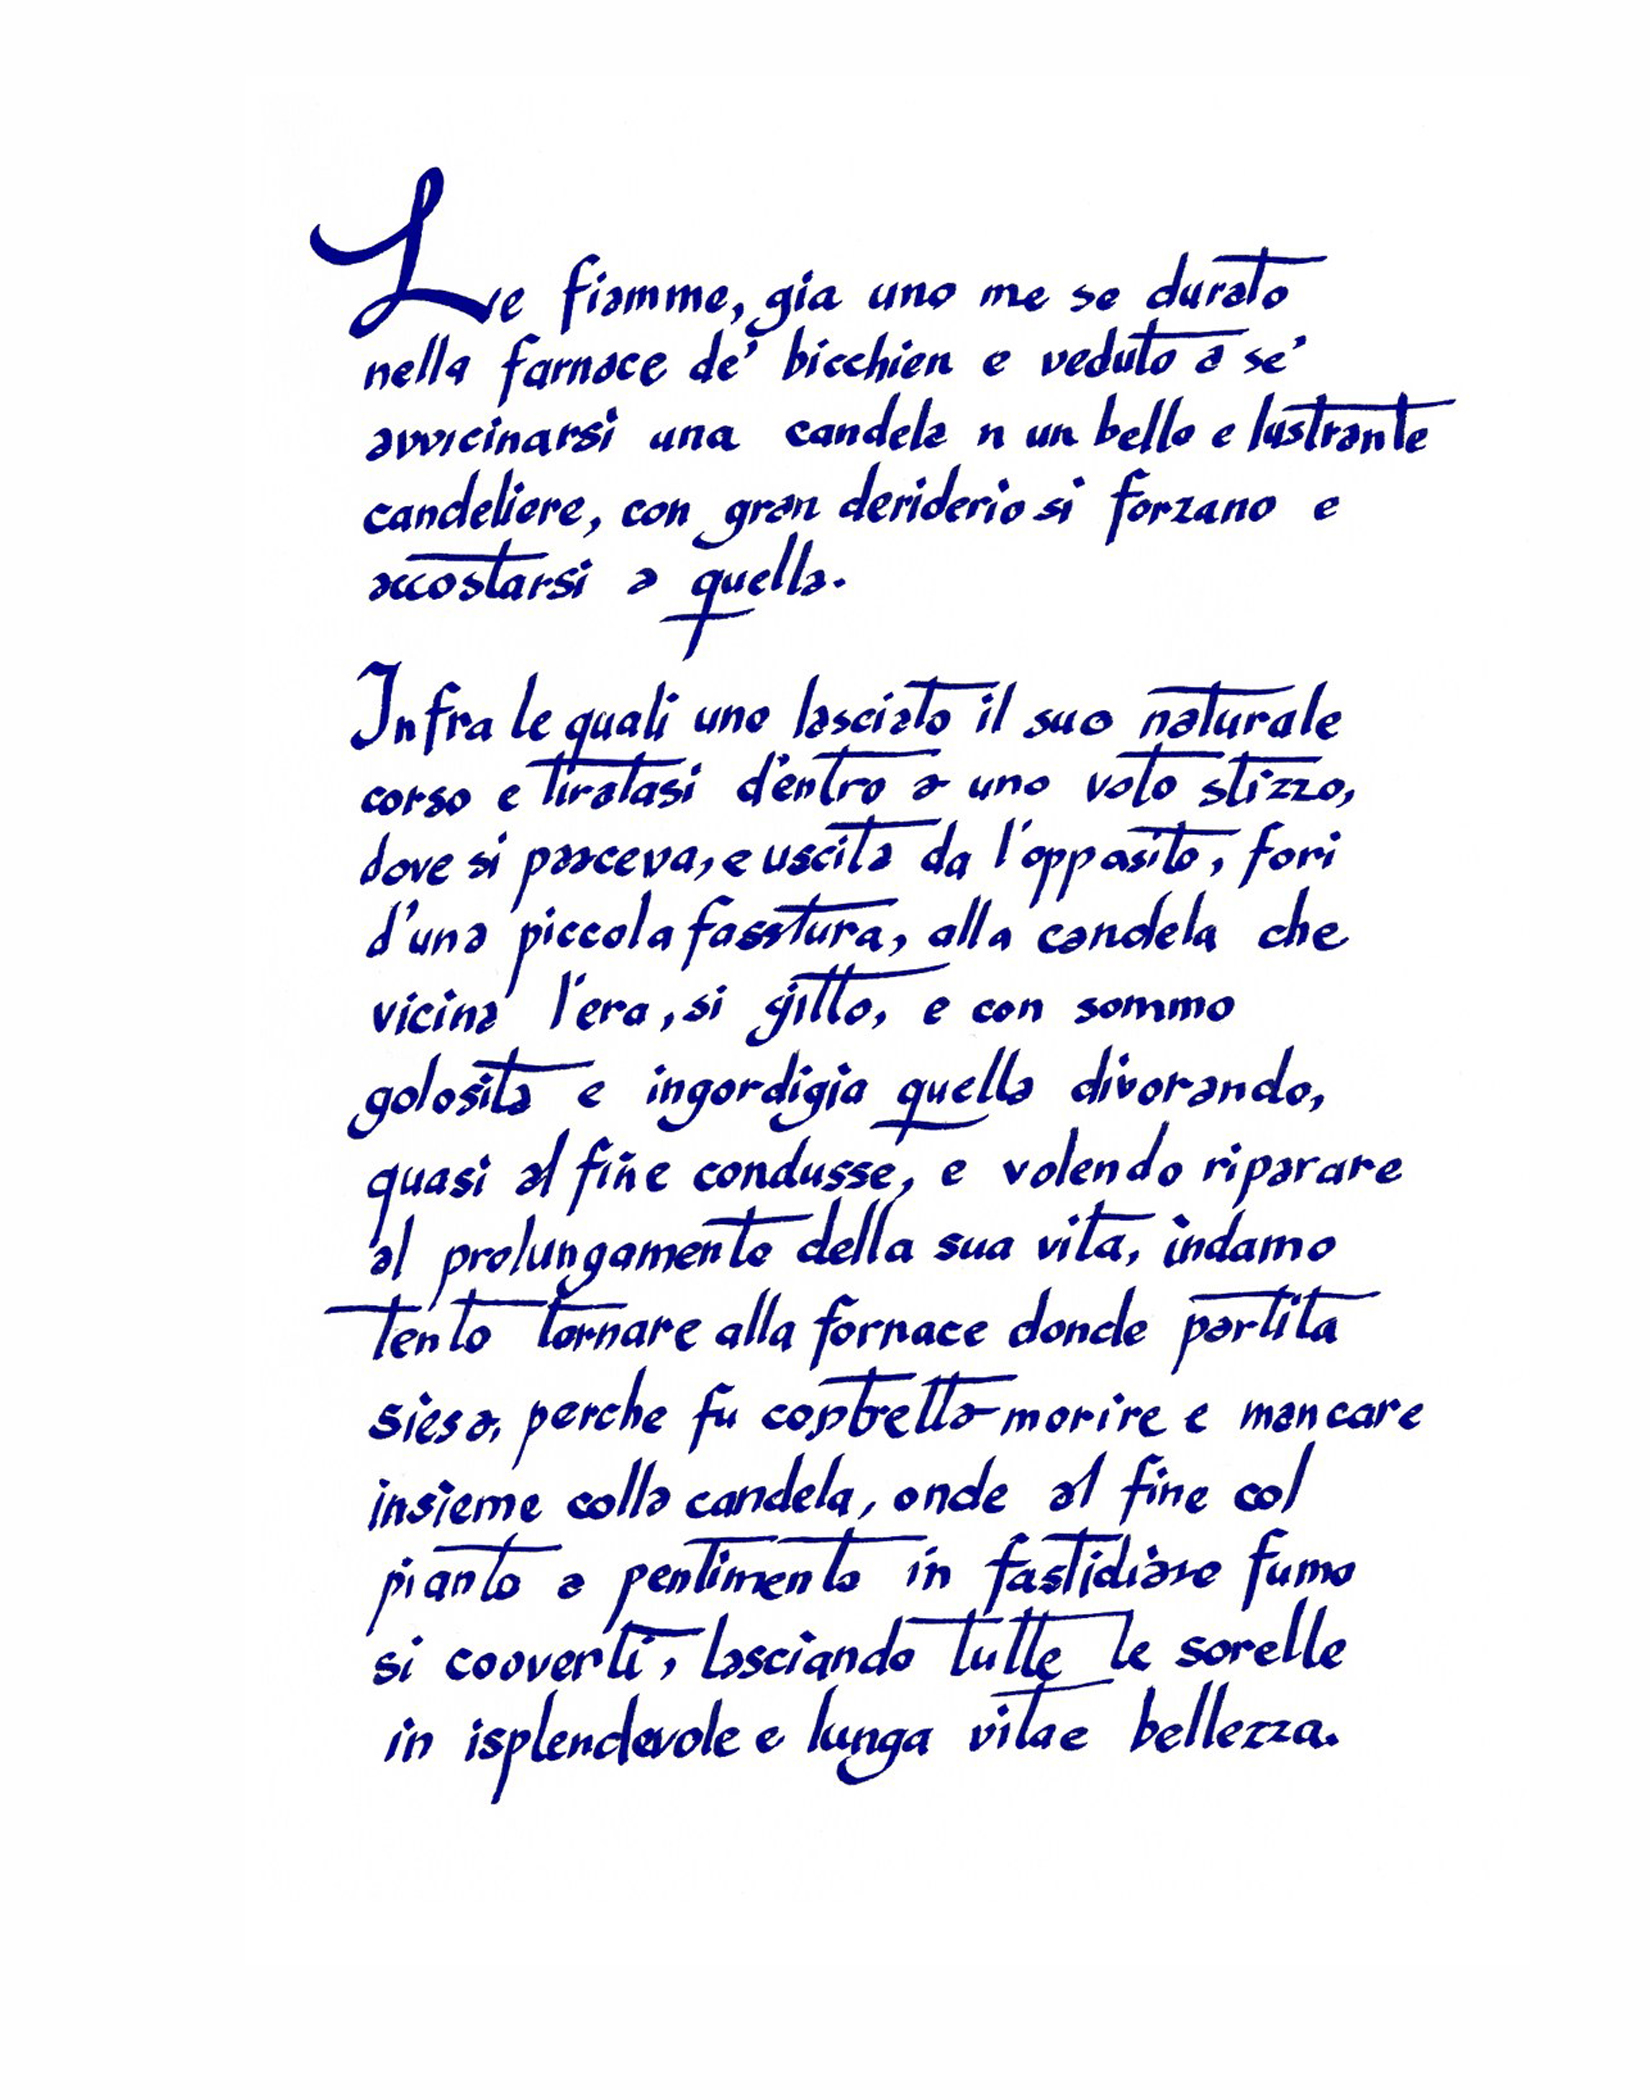 Le fiamme, gia uno me se durato
nella farnace de' bicchien e veduto a se'
avvicinarsi una candela n un bello e lustrante
candeliere, con gran deriderio si forzano e
accostarsi a quella.
Infra le quali uno lasciato il suo naturale
corso e tiratasi d'entro a uno voto stizzo,
dove si pasceva, e uscita da l'opposito, fori
d'una piccola fasstura, alla candela che
vicina l'era, si gitto, e con sommo
golosita e ingordigia quella divorando,
quasi al fine condusse, e volendo riparare
al prolungamento della sua vita, indamo
tento tornare alla fornace donde partita
siesa, perche fu costretta morire e mancare
insieme colla candela, onde al fine col
pianto a pentimento in fastidioso fumo
si cooverti, lasciando tutte le sorelle
in isplendevole e lunga vita e bellezza.